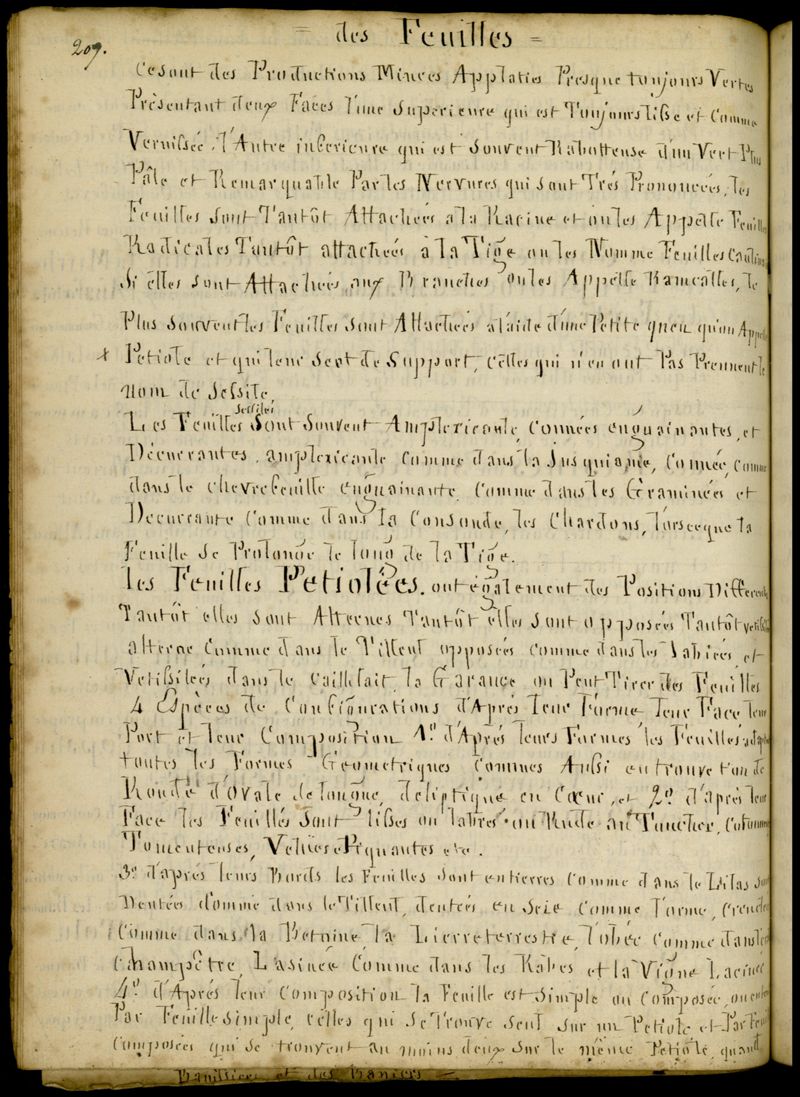 209.
= des Feuilles =
Ce sont des Productions Minces Applaties Presque toujours Vertes
Présentant deux Faces l'une Superieure qui est Toujours lisse et Comme
Vernissée, l'Autre inferieure qui est Souvent Rabotteuse d'un Vert Plus
Pâle et Remarquable Par les Nervures qui sont Très Prononcées, les
Feuilles Sont Tantôt Attachées a la Racine et on les Appelle Feuilles
Radicales Tantôt attachées à la Tige on les Nomme Feuilles
Si elles sont Attachées aux Branches on les Appelle Ramealles, le
Plus Souvent les Feuilles Sont Attachées a l'aide d'une Petite queu qu'on
Petiole et qui leur Sert de Support, Celles qui n'en ont Pas Prennent le
Nom de Sessile,
sessiles
Les Feuilles Sont Souvent Amplexicaule, Connées enguainantes, et
Décurrantes. amplexicaule Comme dans la Jusquiame, Connée, Comme
dans le Chevrefeuille enguainante, Comme dans les Graminées et
Decurrante Comme dans la Consoude, les Chardons, l'orsceque la
Feuille Se Prolonge le long de la Tige.
les Feuilles Petiolées. ont également des Positions
Tantôt elles Sont Alternes Tantôt elles Sont opposées Tantôt
alterne Comme dans le Tilleul opposées Comme dans les Labiées et
Vetissilées dans le Caillelait, la Garance on Peut Tirer des Feuilles
4 Espèces de Configurations d'Après leur Forme leur Face leur
Port et leur Composition 1º d'Après leurs Formes les Feuilles
toutes les Formes Geometriques Commes Aussi en trouve t'on de
Ronde d'Ovale de longue, en Cœur, et 2º d'après leur
Face les Feuilles Sont lisses ou ou Rude au Toucher,
Tomenteuses, Velues Piquantes etc.
3º d'apres leurs Bords les Feuilles Sont entierres Comme dans le Lilas
Dentées Comme dans le Tilleul, dentées en Scie Comme l'orme,
Comme dans la Betoine, la Lierre terrestre, lobée Comme dans
Champêtre, Lasinée Comme dans les Raves et la Vigne
4º d'Après leur Composition la Feuille est Simple ou Composée,
Par Feuille Simple, Celles qui Se Trouve Seul Sur un Petiole et Par
Composées qui Se trouvent au moins deux Sur le même Petiole, quant
et des